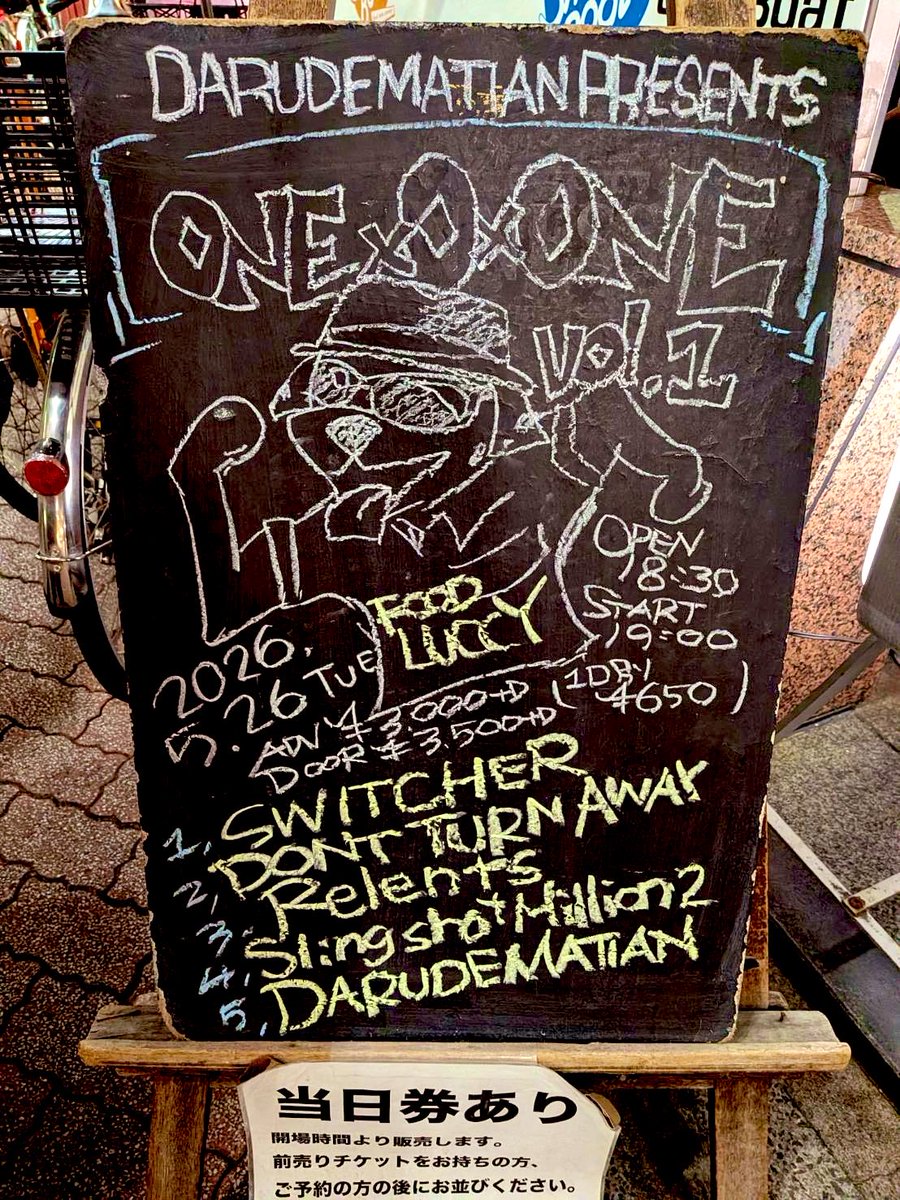 DARUDEMATIAN PRESENTS
ONE×O×ONE
vol.1
OPEN
18:30
START
19:00
(1DBY
¥650)
FOOD
LUCCY
2026.
5.26 TUE
ADV ¥3.000+D
DOOR ¥3.500+D
1, SWITCHER
2, DONT TURN AWAY
3. Relents
4. Slingshot Million2
5, DARUDEMATIAN
当日券あり
開場時間より販売します。
前売りチケットをお持ちの方、
ご予約の方の後にお並びください。